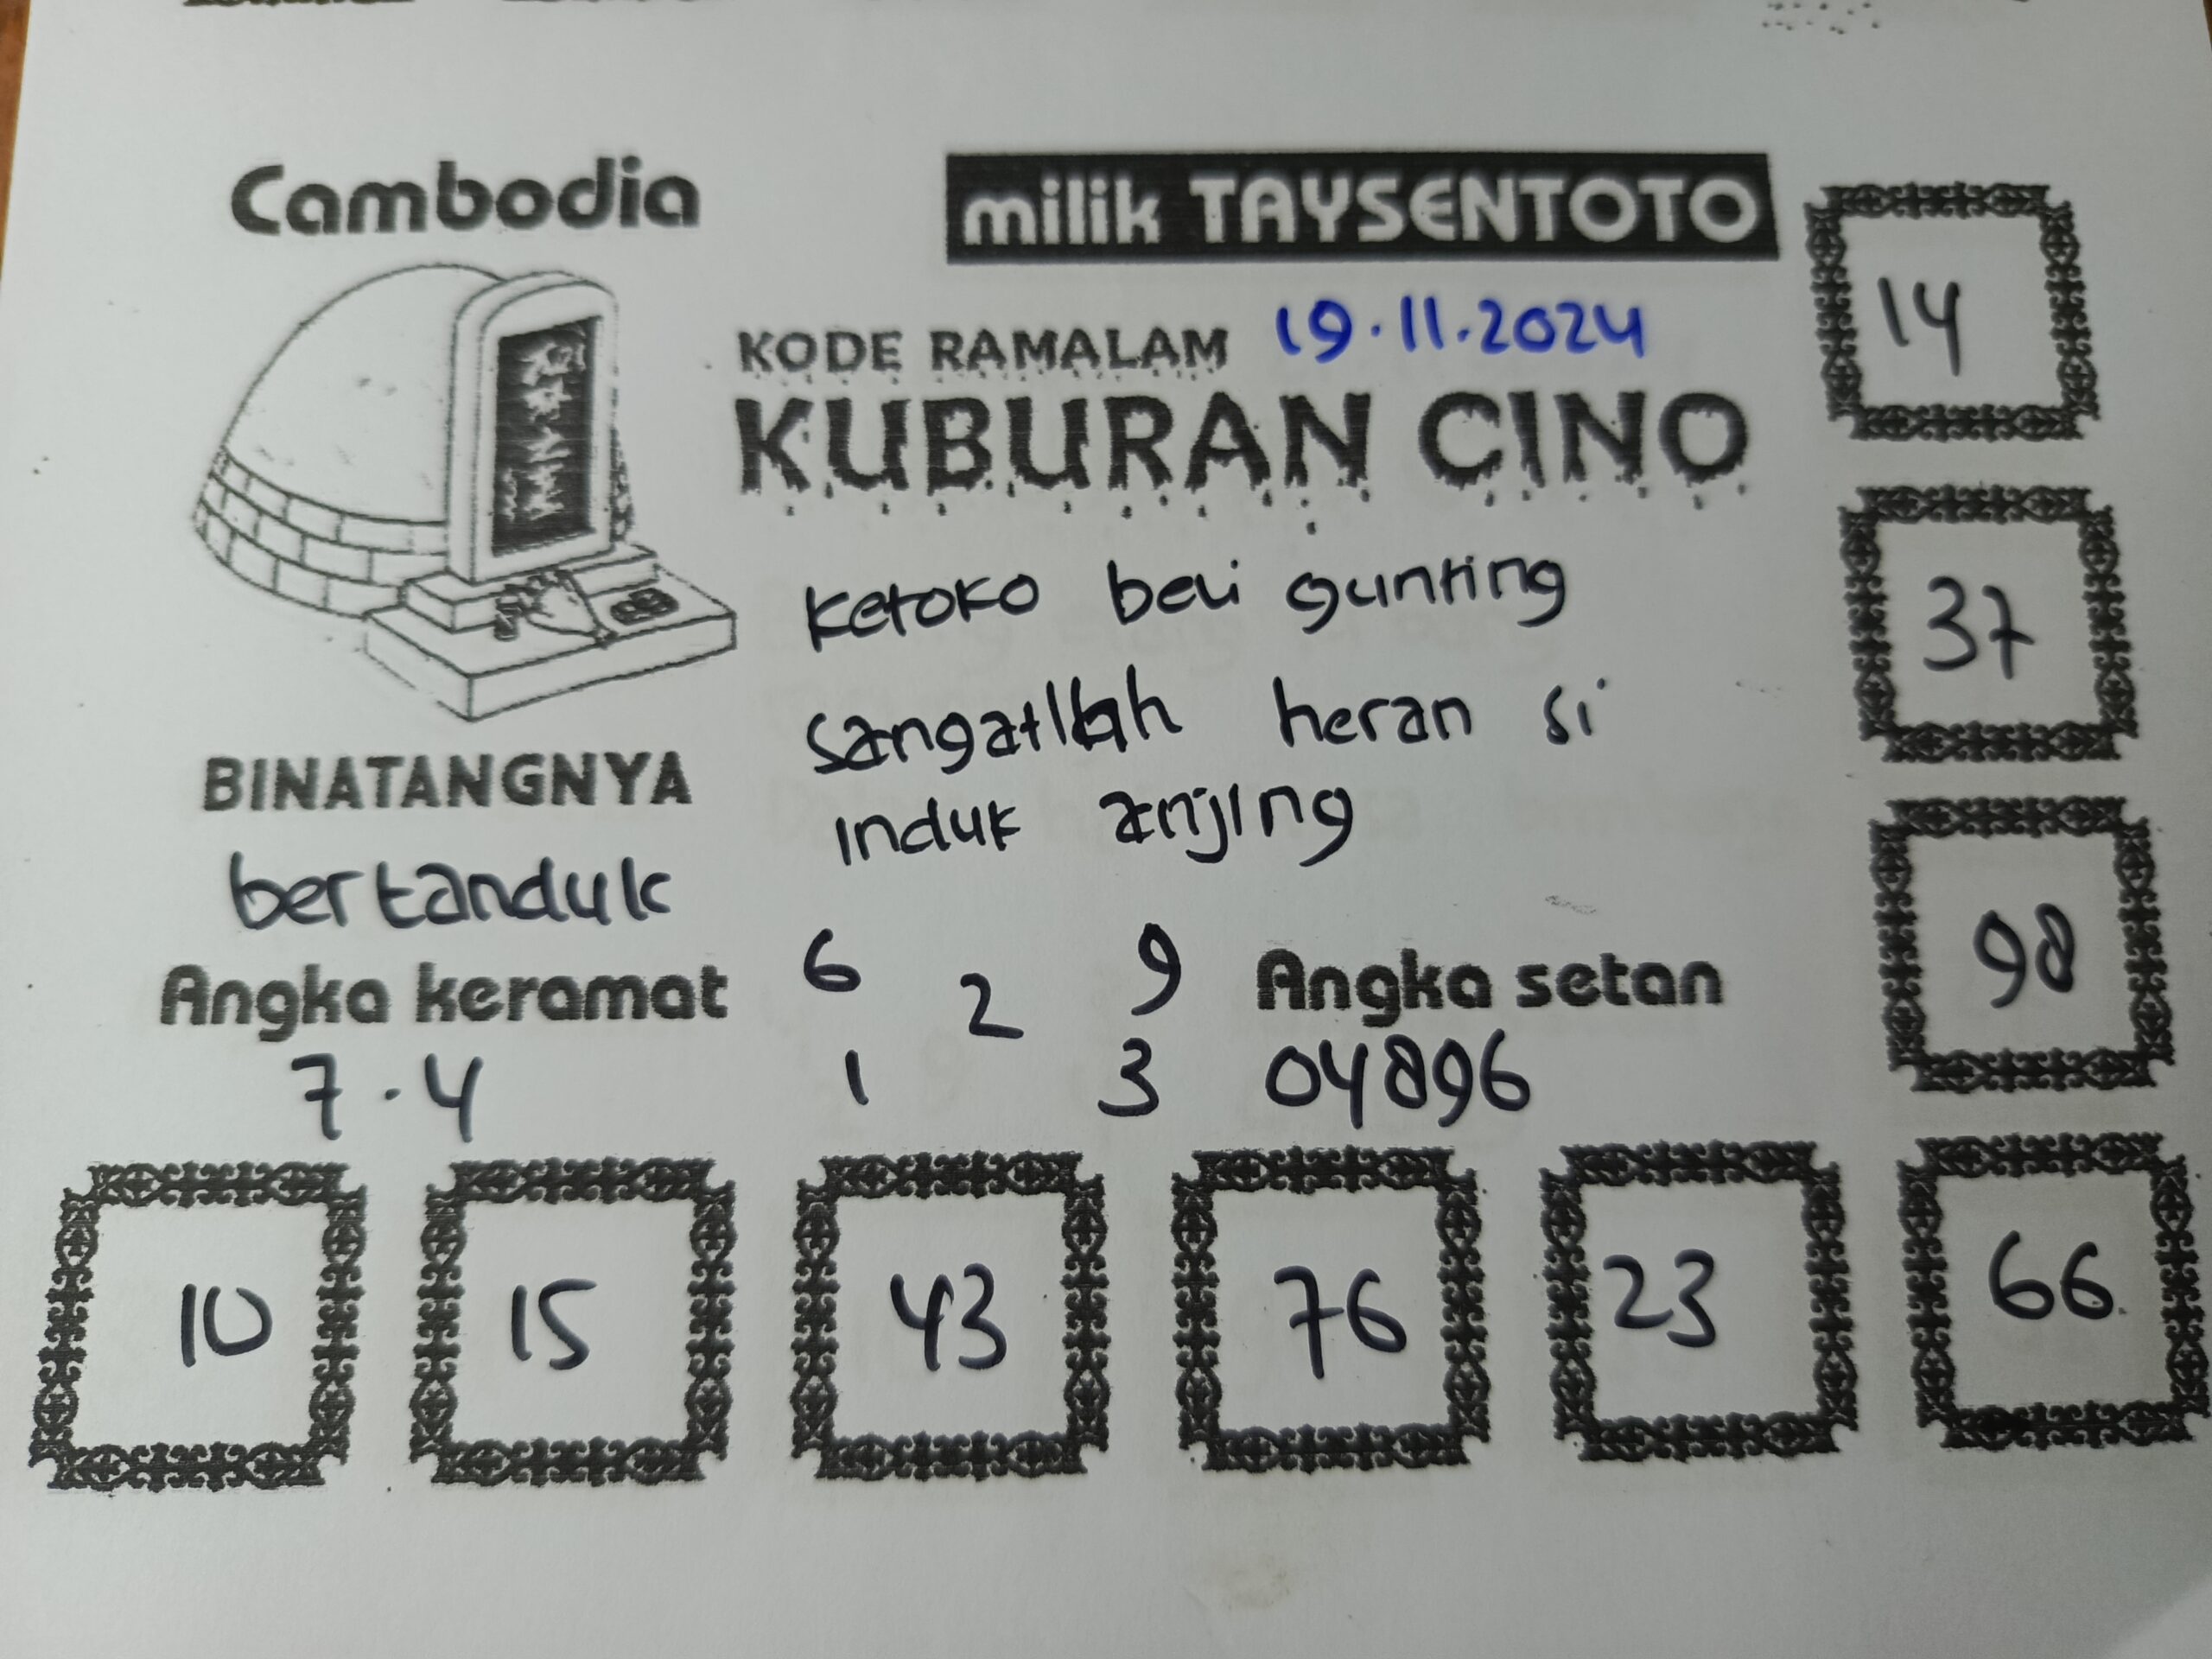 Cambodia
milik TAYSENTOTO
KODE RAMALAM 19.11.2024
KUBURAN CINO
14
37
98
Ketoko beli gunting
sangatllah heran si
induk anjing
BINATANGNYA
bertanduk
Angka keramat
7.4
6 9
2
1 3
Angka setan
04896
10 15 43 76 23 66